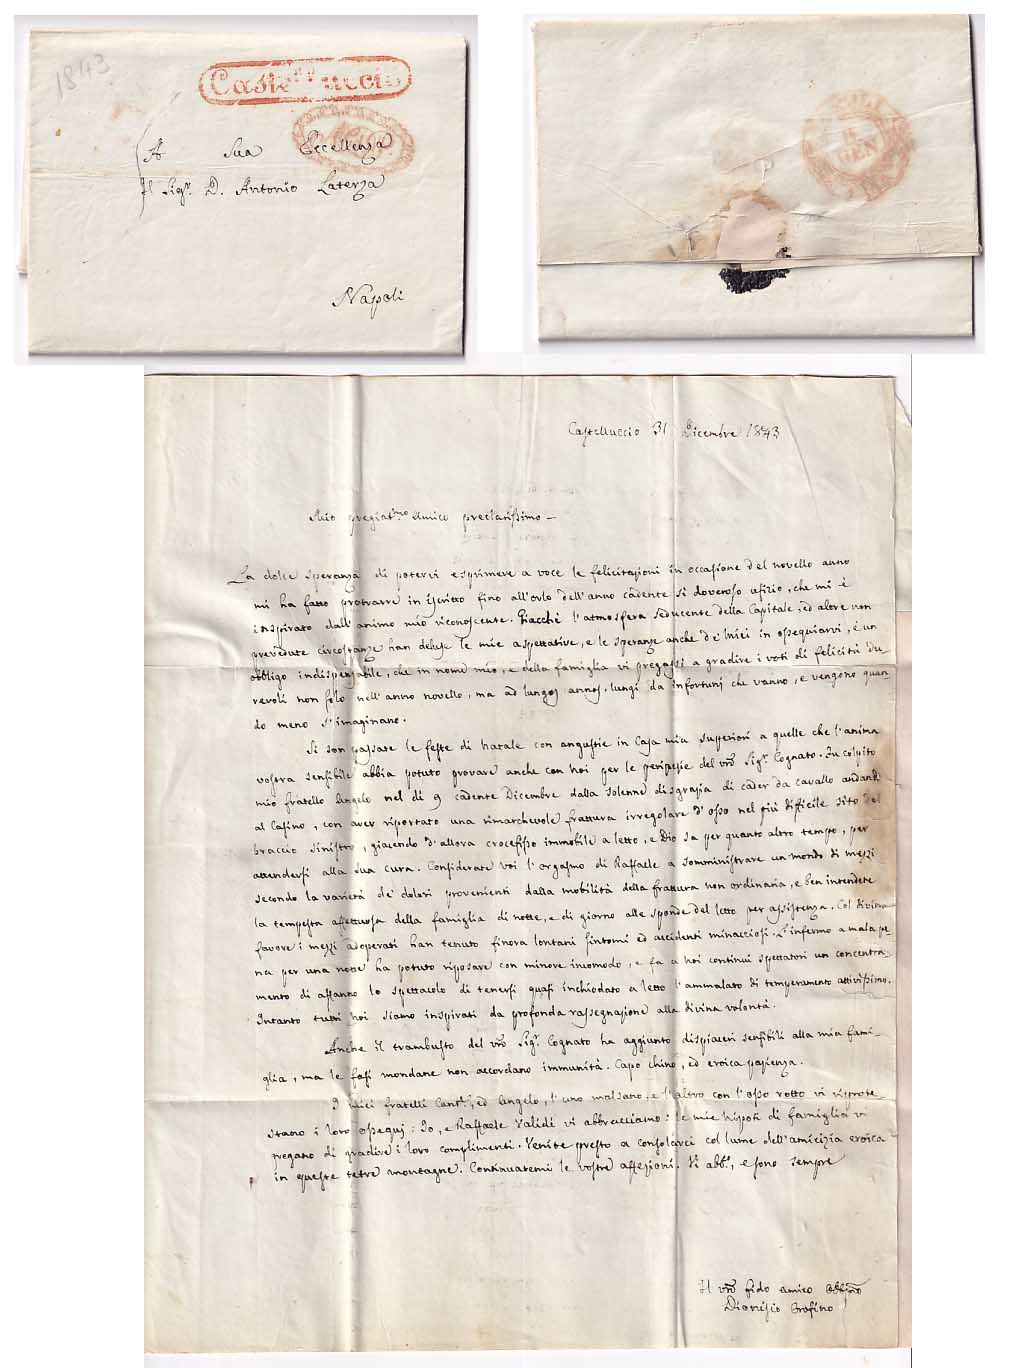 1843
Castelluccio
A Sua Eccellenza
Il Sigr. D. Antonio Laterza
Napoli
GEN
Castelluccio 31 Dicembre 1843
Mio pregiatmo Amico preclarissimo -
La dolce speranza di potervi esprimere a voce le felicitazioni in occasione del novello anno
mi ha fatto protrarre in iscritto fino all'orlo dell'anno cadente sì doveroso ufizio, che mi è
inspirato dall'animo mio riconoscente. Giacchè l'atmosfera seducente della Capitale, ed altre non
prevedute circostanze han deluse le mie aspettative, e le speranze anche de' miei in ossequiarvi, è un
obbligo indispensabile, che in nome mio, e della famiglia vi pregassi a gradire i voti di felicità du-
revoli non solo nell'anno novello, ma ad longos annos. lungi da infortuni che vanno, e vengono quan-
do meno s'imaginano.
Si son passate le feste di Natale con angustie in Casa mia superiori a quelle che l'anima
vostra sensibile abbia potuto provare anche con noi per le peripezie del vro Sigr. Cognato. Fu colpito
mio fratello Angelo nel dì 9 cadente Dicembre dalla solenne disgrazia di cader da cavallo andando
al Casino, con aver riportato una rimarchevole frattura irregolare d'osso nel più difficile sito del
braccio sinistro, giacendo d'allora crocefisso immobile a letto, e Dio sa per quanto altro tempo, per
attendersi alla sua cura. Considerate voi l'orgasmo di Raffaele a somministrare un mondo di mezzi
secondo la varietà de' dolori provenienti dalla mobilità della frattura non ordinaria, e ben intendete
la tempesta affettuosa della famiglia di notte, e di giorno alle sponde del letto per assistenza. Col divino
favore i mezzi adoperati han tenuto finora lontani sintomi ed accidenti minacciosi. L'infermo a mala pe-
na per una notte ha potuto riposare con minore incomodo, e fa a noi continui spettatori un concentra-
mento di affanno lo spettacolo di tenersi quasi inchiodato a letto l'ammalato di temperamento attivissimo.
Intanto tutti noi siamo inspirati da profonda rassegnazione alla divina volontà.
Anche il trambusto del vro Sigr. Cognato ha aggiunto dispiaceri sensibili alla mia fami-
glia, ma le fasi mondane non accordano immunità. Capo chino, ed eroica pazienza.
I miei fratelli Cantre, ed Angelo, l'uno malsano, e l'altro con l'osso rotto vi riprote
stano i loro ossequj: Io, e Raffaele validi vi abbracciamo: le mie Nipoti di famiglia vi
pregano di gradire i loro complimenti. Venite presto a consolarci col lume dell'amicizia eroica
in queste tetre montagne. Continuatemi le vostre affezioni. Vi abbo, e sono sempre
Il vro fido amico obbmo
Dionisio